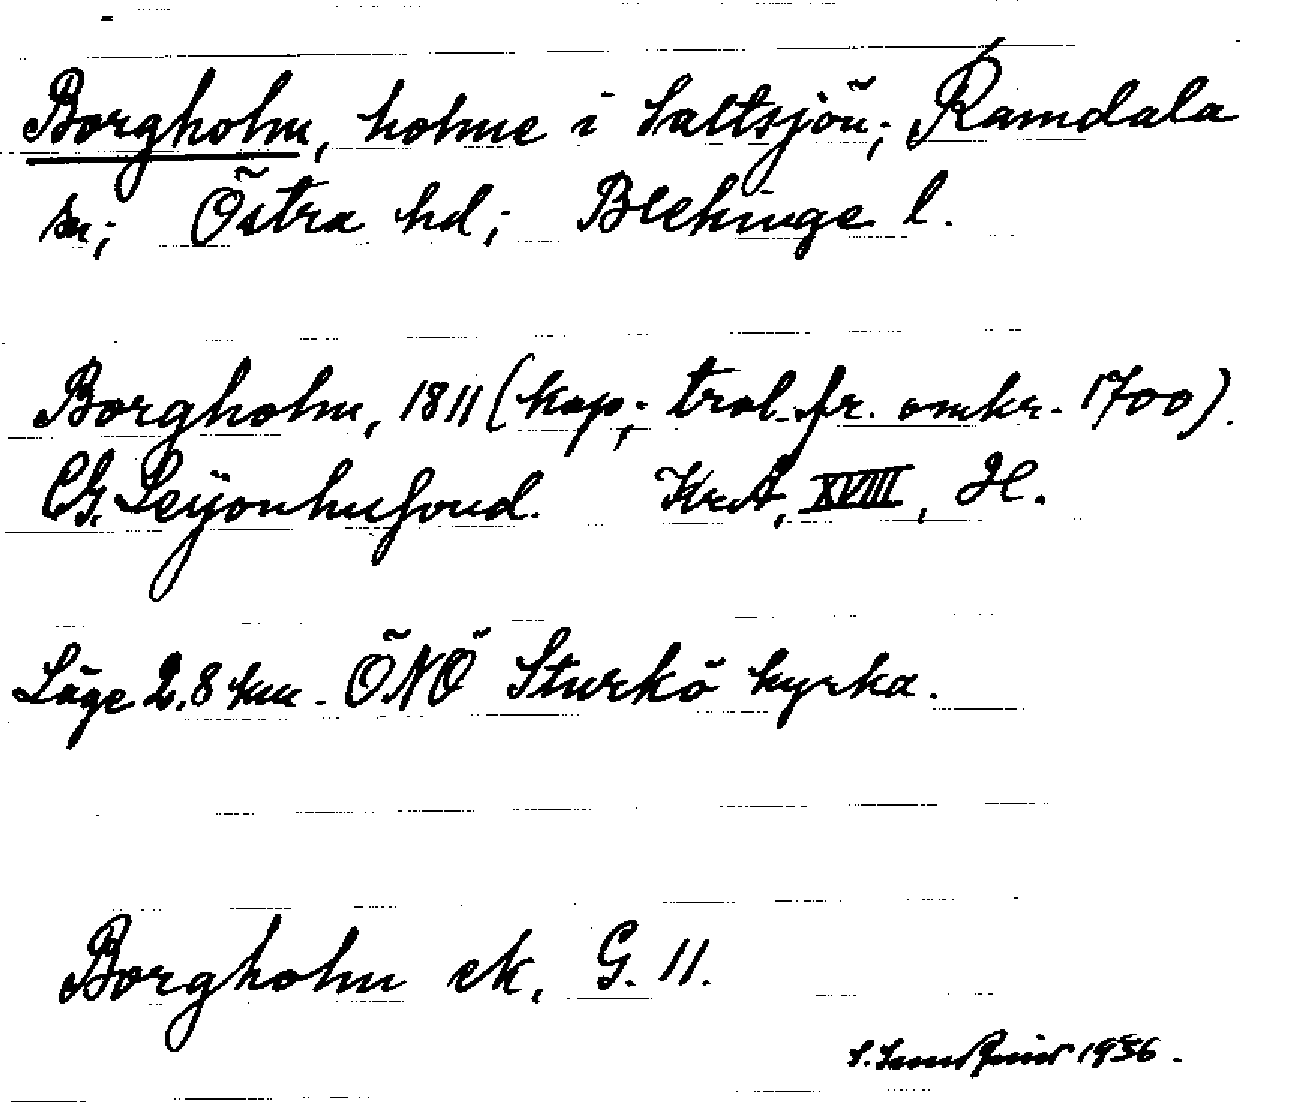 Borgholm, holme i Saltsjön; Ramdala
sn; Östra hd; Blekinge l.
Borgholm, 1811 (kop.; trol. fr. omkr. 1700).
CG. Leijonhufvud. KrA, XVIII, H.
Läge 2.8 km. ÖNÖ Sturkö kyrka.
Borgholm ek. G. 11.
S. 1936.